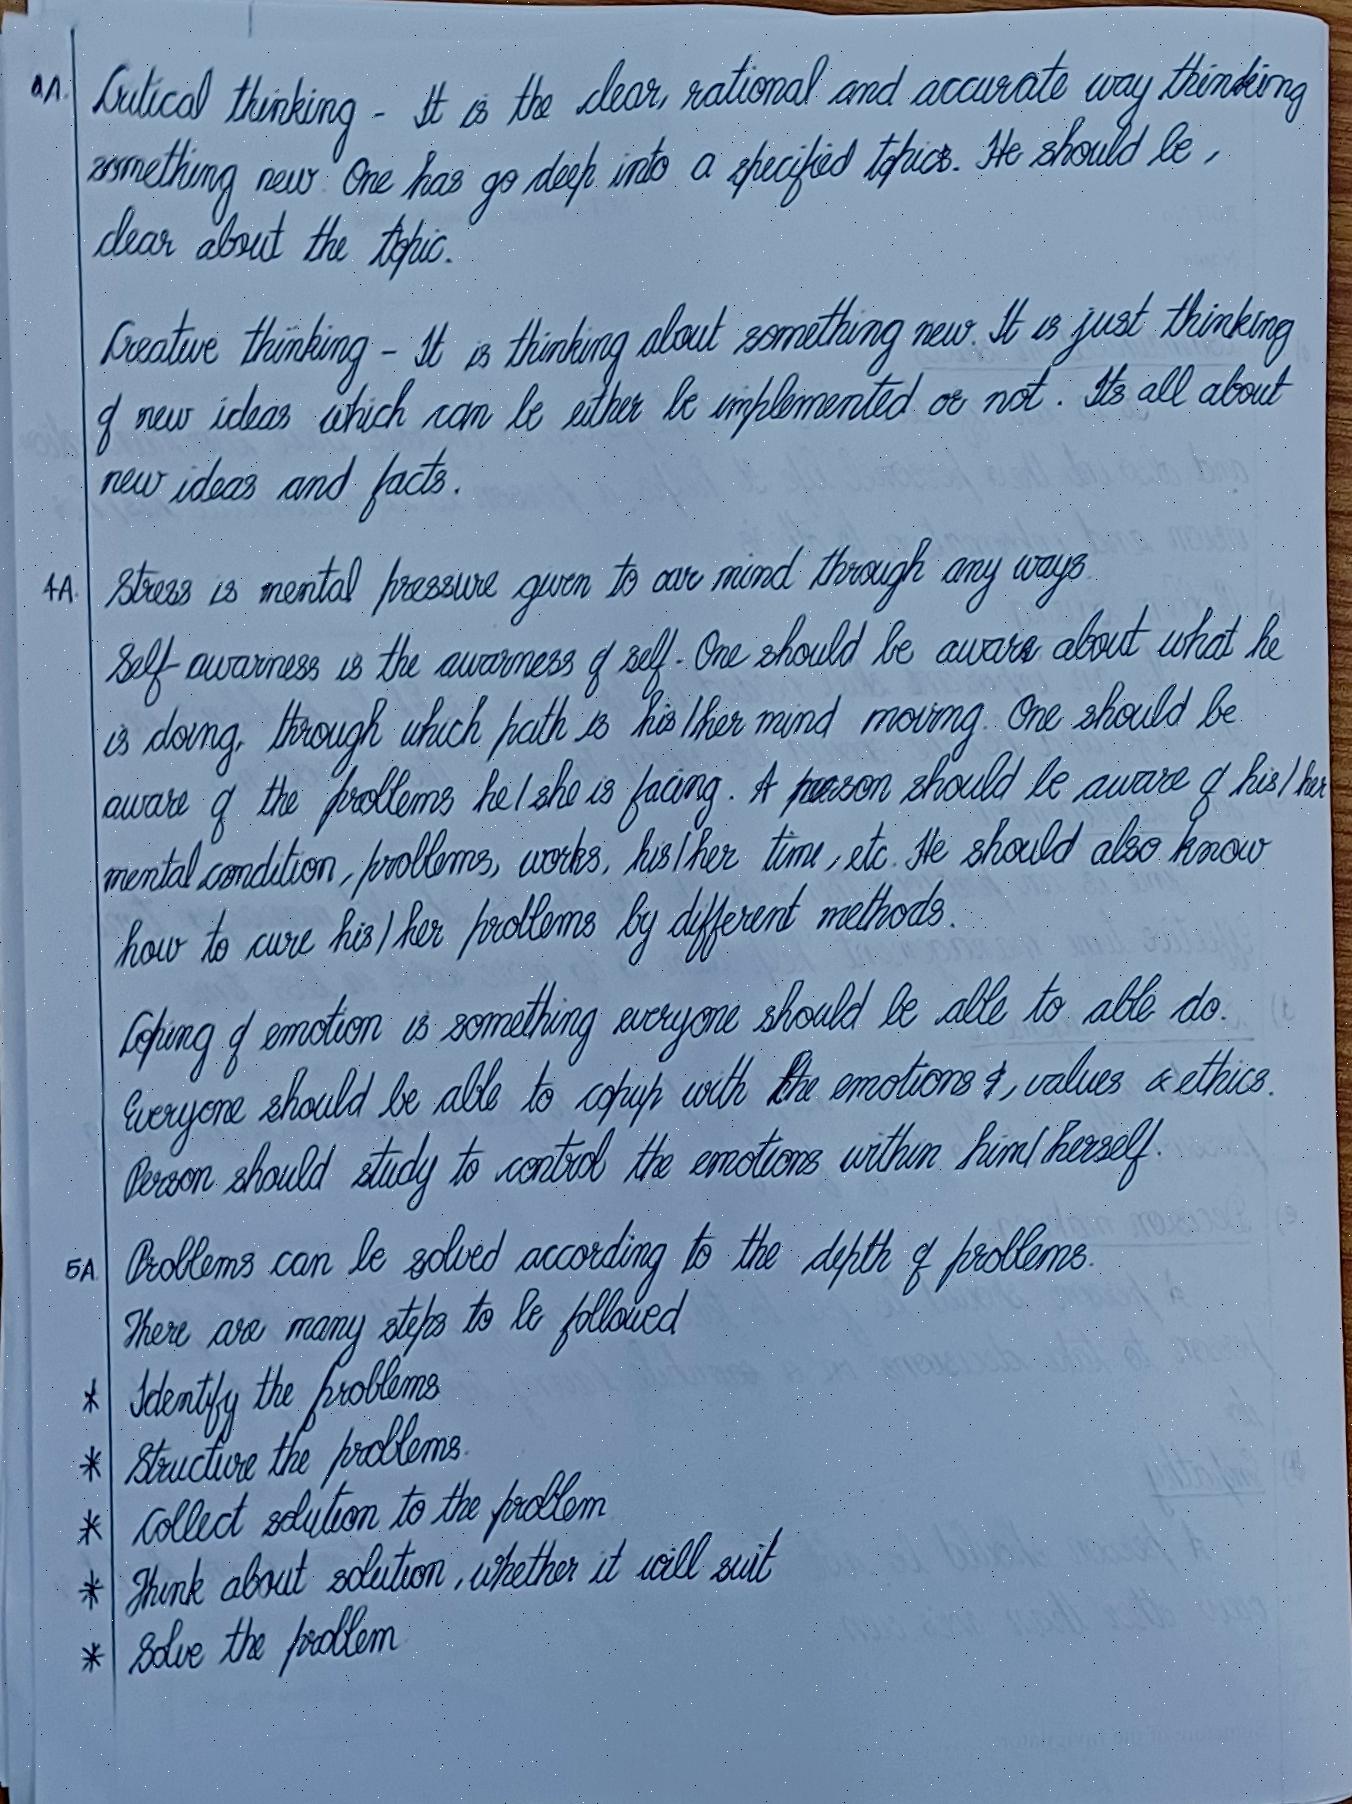 2A. Critical thinking - It is the clear, rational and accurate way thinking
something new. One has go deep into a specified topics. He should be,
clear about the topic.
Creative thinking - It is thinking about something new. It is just thinking
of new ideas which can be either be implemented or not. Its all about
new ideas and facts.
4A. Stress is mental pressure given to our mind through any ways.
Self-awarness is the awarness of self. One should be aware about what he
is doing, through which path is his/her mind moving. One should be
aware of the problems he/she is facing. A person should be aware of his/her
mental condition, problems, works, his/her time, etc. He should also know
how to cure his/her problems by different methods.
Coping of emotion is something everyone should be able to able do.
Everyone should be able to copup with the emotions &, values & ethics.
Person should study to control the emotions within him/herself.
5A. Problems can be solved according to the depth of problems.
There are many steps to be followed
* Identify the problems
* Structure the problems.
* Collect solution to the problem
* Think about solution, whether it will suit
* Solve the problem